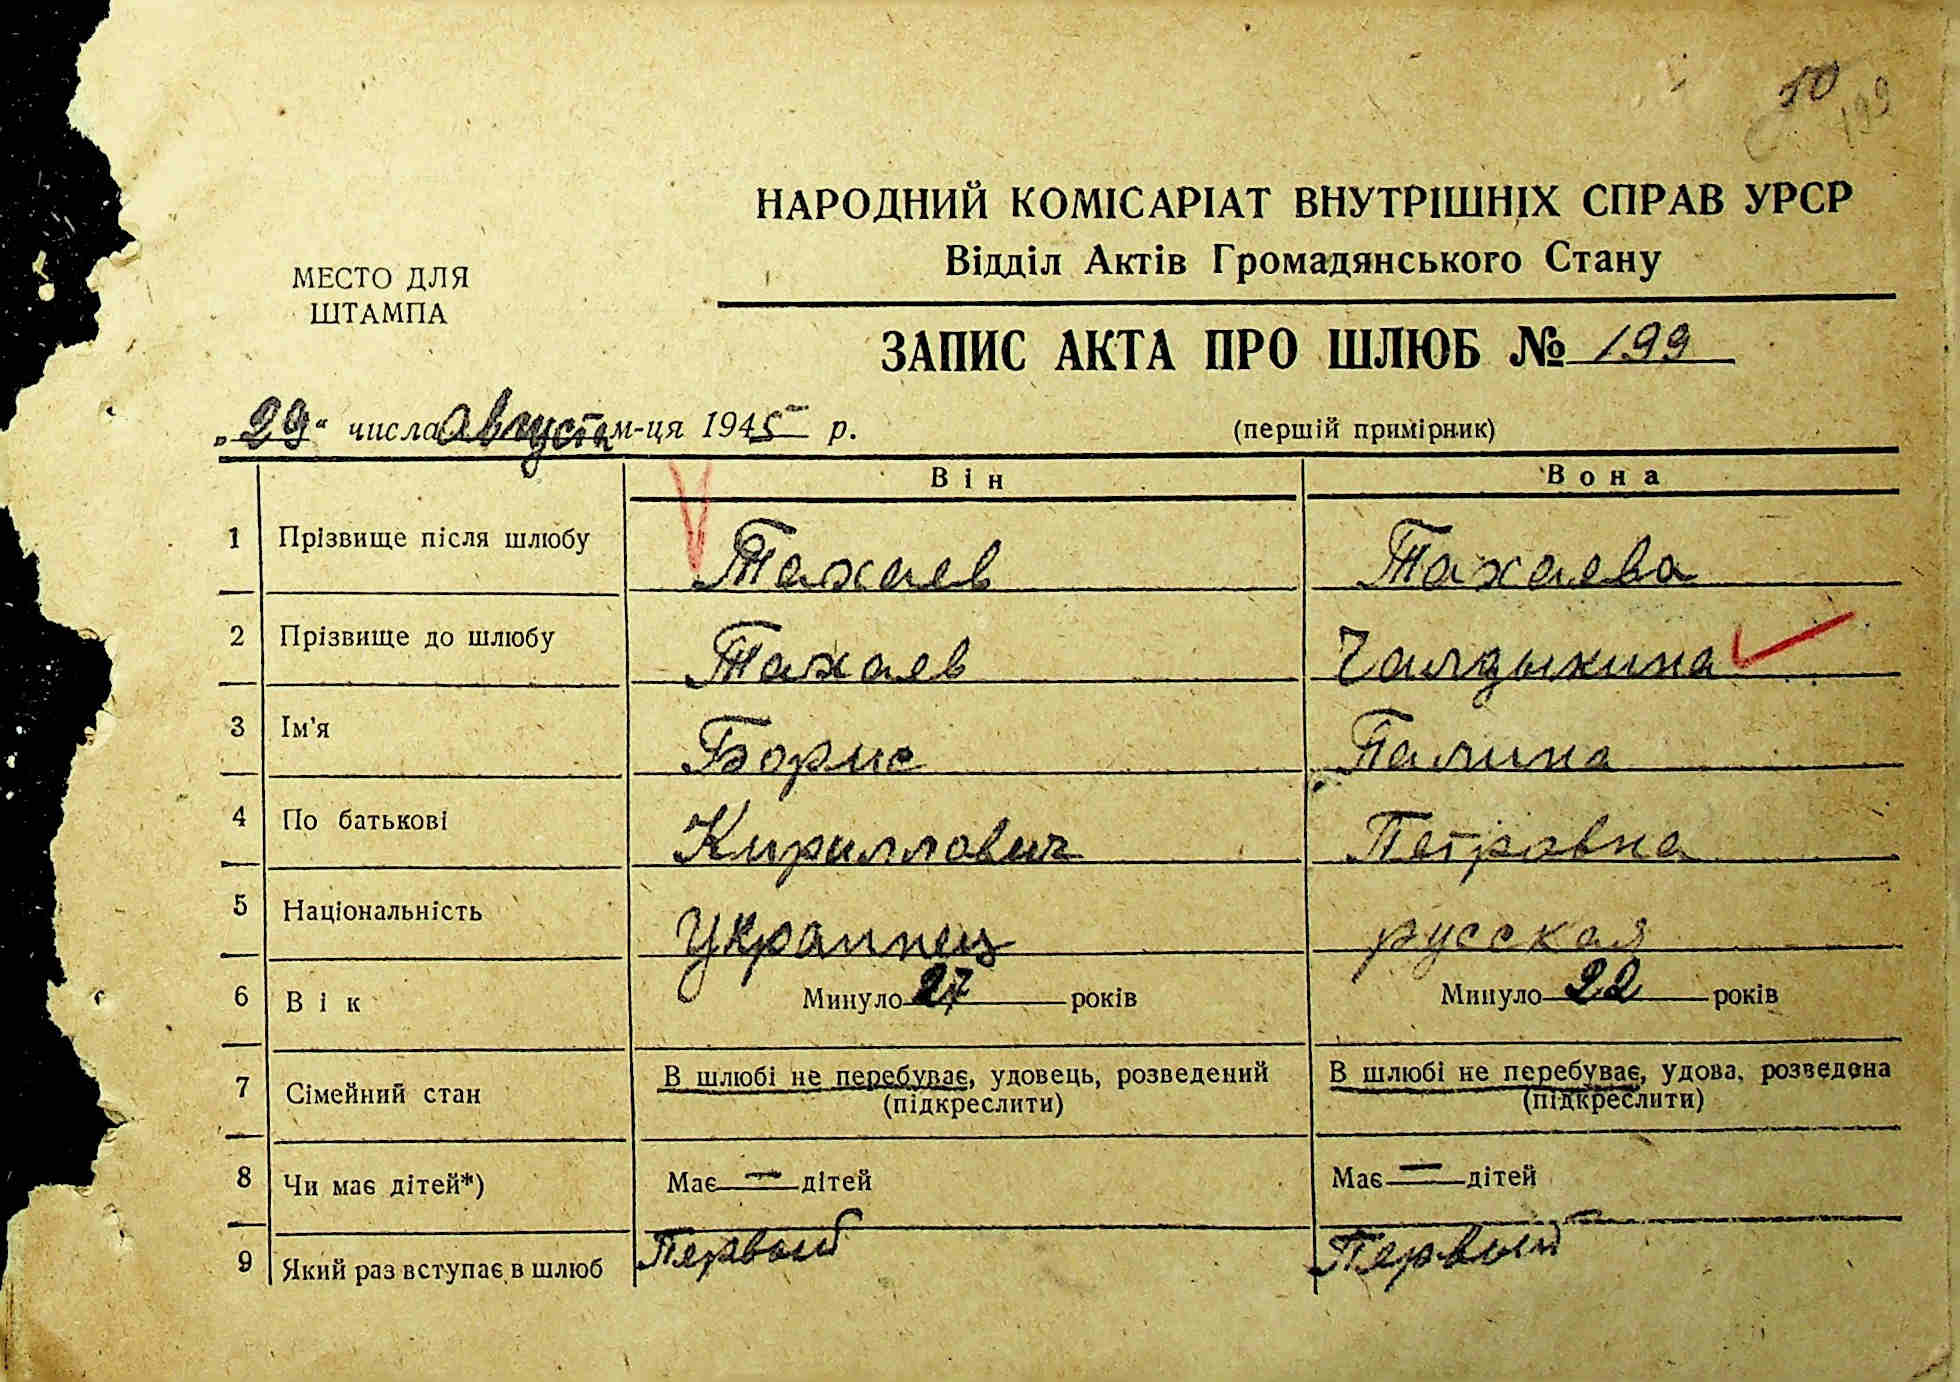 10
199
НАРОДНИЙ КОМІСАРІАТ ВНУТРІШНІХ СПРАВ УРСР
Відділ Актів Громадянського Стану
МЕСТО ДЛЯ
ШТАМПА
ЗАПИС АКТА ПРО ШЛЮБ № 199
„29“ числа августа м-ця 1945 р. (перший примірник)
Він Вона
1 Прізвище після шлюбу Тахаев Тахаева
2 Прізвище до шлюбу Тахаев Чалдыкина
3 Ім'я Борис Палина
4 По батькові Кириллович Петровна
5 Національність Украинец русская
6 Вік Минуло 27 років Минуло 22 років
7 Сімейний стан В шлюбі не перебуває, удовець, розведений В шлюбі не перебуває, удова, розведена
(підкреслити) (підкреслити)
8 Чи має дітей*) Має — дітей Має — дітей
9 Який раз вступає в шлюб Первый Первый